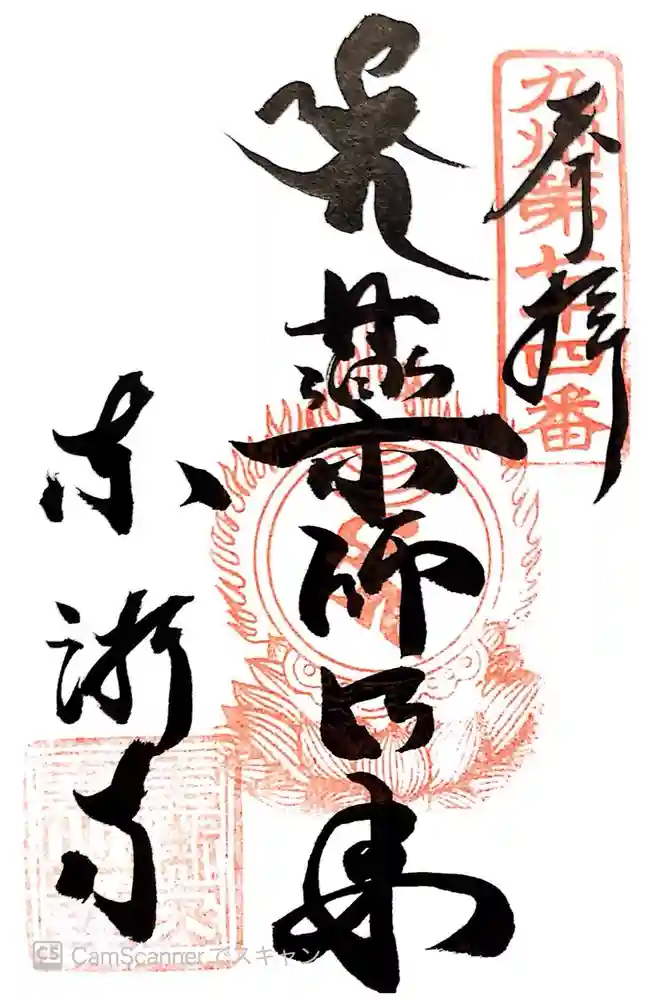 奉拝
九州第七十四番
薬師如来
東漸寺
CS CamScanner でスキャン